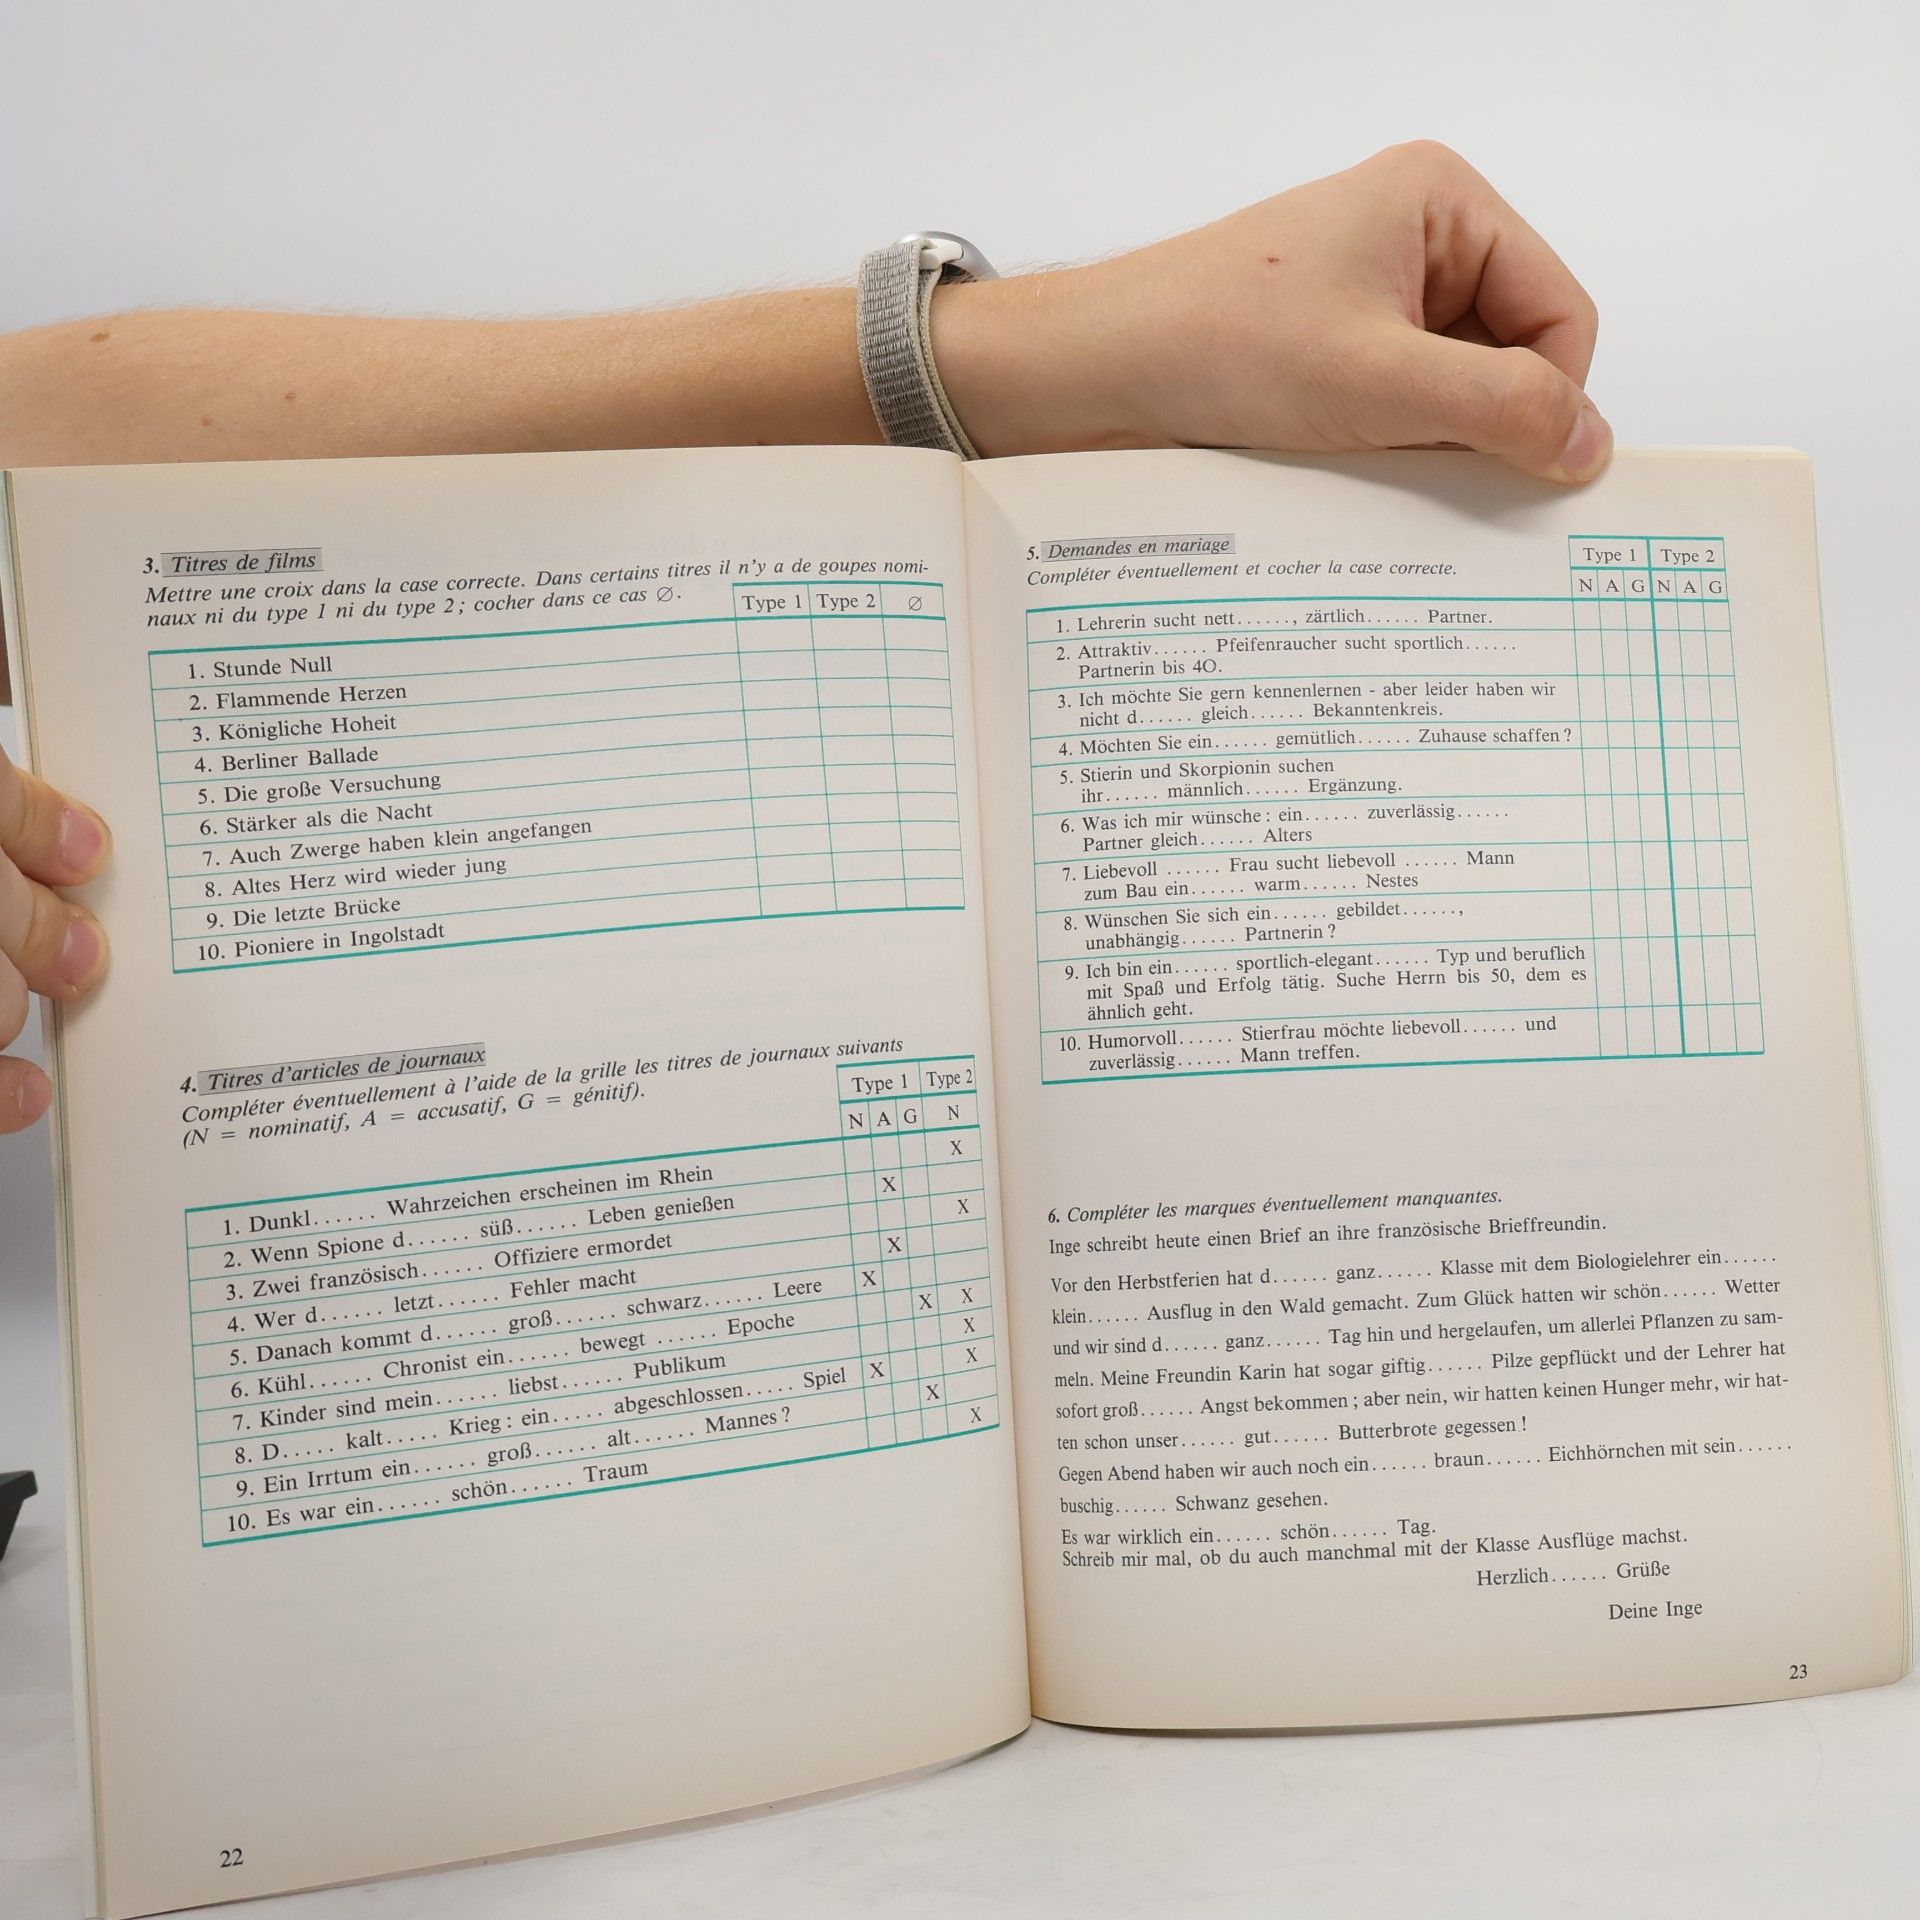 3. Titres de films
Mettre une croix dans la case correcte. Dans certains titres il n'y a de goupes nomi-
naux ni du type 1 ni du type 2; cocher dans ce cas ∅.
Type 1 Type 2 ∅
1. Stunde Null
2. Flammende Herzen
3. Königliche Hoheit
4. Berliner Ballade
5. Die große Versuchung
6. Stärker als die Nacht
7. Auch Zwerge haben klein angefangen
8. Altes Herz wird wieder jung
9. Die letzte Brücke
10. Pioniere in Ingolstadt
4. Titres d'articles de journaux
Compléter éventuellement à l'aide de la grille les titres de journaux suivants
(N = nominatif, A = accusatif, G = génitif).
Type 1 Type 2
N A G N
1. Dunkl...... Wahrzeichen erscheinen im Rhein X
2. Wenn Spione d...... süß...... Leben genießen X
3. Zwei französisch...... Offiziere ermordet X
4. Wer d...... letzt...... Fehler macht X
5. Danach kommt d...... groß...... schwarz...... Leere X
6. Kühl...... Chronist ein...... bewegt ...... Epoche X X
7. Kinder sind mein...... liebst...... Publikum X
8. D..... kalt..... Krieg : ein..... abgeschlossen..... Spiel X X
9. Ein Irrtum ein...... groß...... alt...... Mannes ? X
10. Es war ein...... schön...... Traum X
22
5. Demandes en mariage
Compléter éventuellement et cocher la case correcte.
Type 1 Type 2
N A G N A G
1. Lehrerin sucht nett......, zärtlich...... Partner.
2. Attraktiv...... Pfeifenraucher sucht sportlich......
Partnerin bis 4O.
3. Ich möchte Sie gern kennenlernen - aber leider haben wir
nicht d...... gleich...... Bekanntenkreis.
4. Möchten Sie ein...... gemütlich...... Zuhause schaffen ?
5. Stierin und Skorpionin suchen
ihr...... männlich...... Ergänzung.
6. Was ich mir wünsche : ein...... zuverlässig......
Partner gleich...... Alters
7. Liebevoll ...... Frau sucht liebevoll ...... Mann
zum Bau ein...... warm...... Nestes
8. Wünschen Sie sich ein...... gebildet......,
unabhängig...... Partnerin ?
9. Ich bin ein...... sportlich-elegant...... Typ und beruflich
mit Spaß und Erfolg tätig. Suche Herrn bis 50, dem es
ähnlich geht.
10. Humorvoll...... Stierfrau möchte liebevoll...... und
zuverlässig...... Mann treffen.
6. Compléter les marques éventuellement manquantes.
Inge schreibt heute einen Brief an ihre französische Brieffreundin.
Vor den Herbstferien hat d...... ganz...... Klasse mit dem Biologielehrer ein......
klein...... Ausflug in den Wald gemacht. Zum Glück hatten wir schön...... Wetter
und wir sind d...... ganz...... Tag hin und hergelaufen, um allerlei Pflanzen zu sam-
meln. Meine Freundin Karin hat sogar giftig...... Pilze gepflückt und der Lehrer hat
sofort groß...... Angst bekommen ; aber nein, wir hatten keinen Hunger mehr, wir hat-
ten schon unser...... gut...... Butterbrote gegessen !
Gegen Abend haben wir auch noch ein...... braun...... Eichhörnchen mit sein......
buschig...... Schwanz gesehen.
Es war wirklich ein...... schön...... Tag.
Schreib mir mal, ob du auch manchmal mit der Klasse Ausflüge machst.
Herzlich...... Grüße
Deine Inge
23